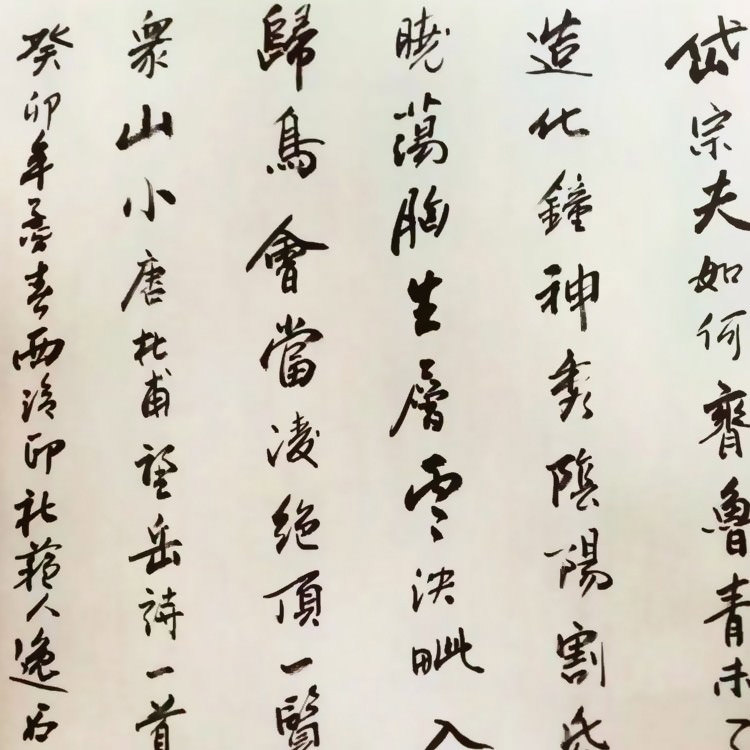 岱宗夫如何齊魯青未了
造化鐘神秀陰陽割昏
曉蕩胸生層雲決眦入
歸鳥會當凌絕頂一覽
衆山小唐杜甫望岳詩一首
癸卯年孟春西泠印社人逸